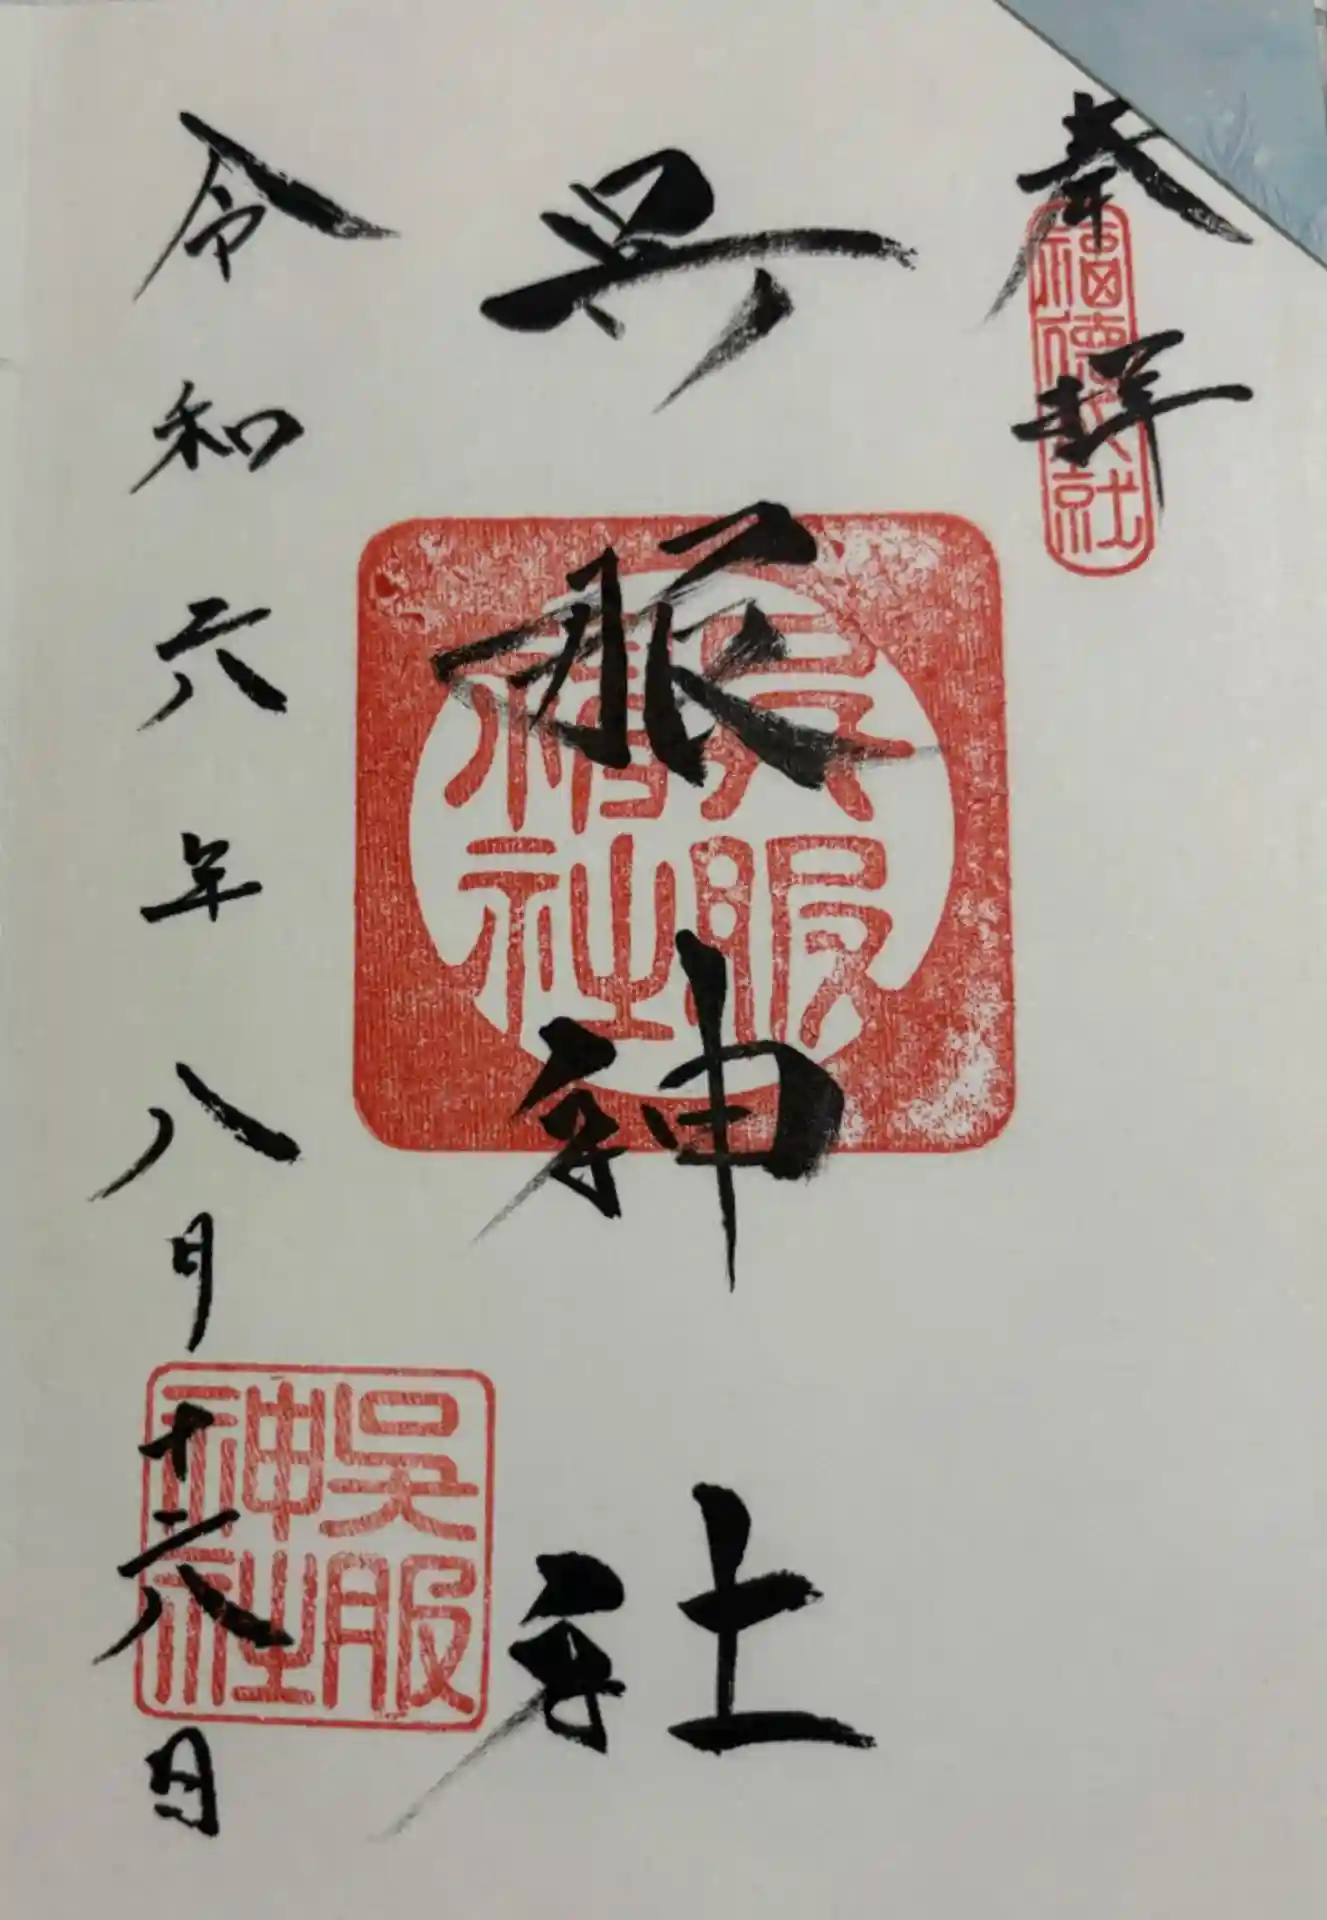 奉拝
福德
社
呉服神社
呉服
社
令和六年八月十六日
呉服
神社